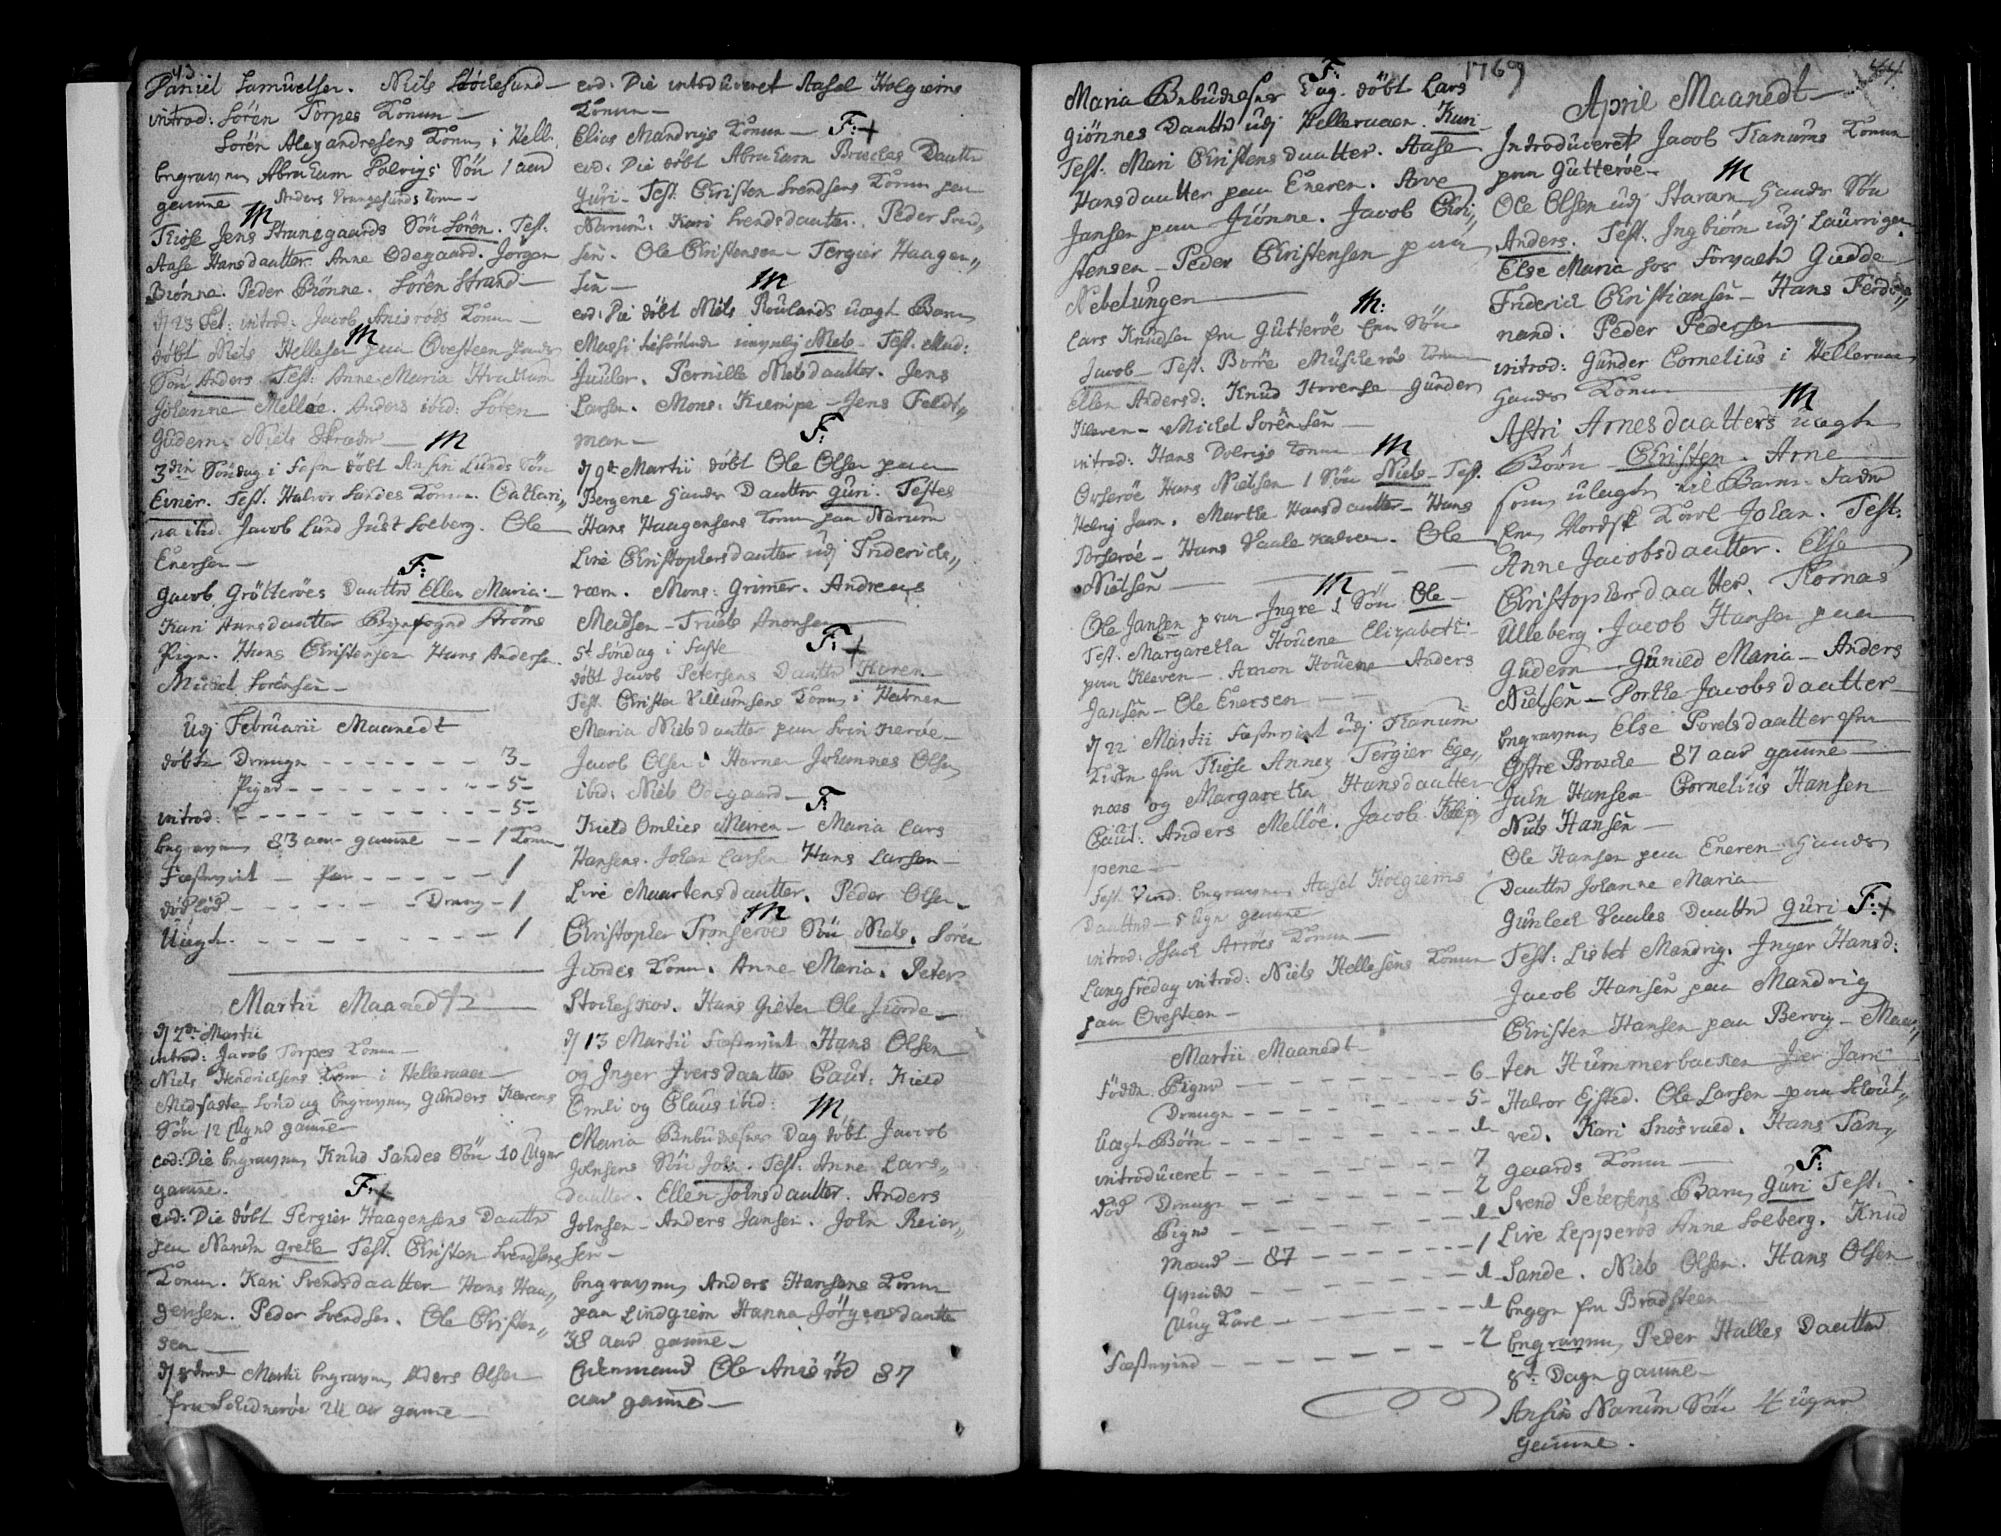 43
Daniel Samuelsen. Niels Stöchesund
introd: Sören Torpes Konen
Sören Alexandersens Konen i Hell.
begraven Abraham Salvigs Sön 1 aar
gamme Anders Vrangesunds Konen
M
Kiöse Jens Strandgaards Sön Sören. Test:
Aase Hansdaatter. Anne Ödegaard. Jörgen
Brönne. Peder Brönne. Sören Strand
d 23 Feb: introd: Jacob Anisröds Konen
M
döbt Niels Hellesen paa Ovesteen
Sön Anders Test: Anne Maria
Johanne Mellöe. Anders ibid: Sören
Gudem. Niels
M
3die Söndag i Faste döbt Lunds Sön
Einer. Test. Halvor Sandes Konen. Cathari„
na ibid. Jacob Lund Just Soeberg. Ole
Enersen
F:
Jacob Grötteröes Daatter Ellen Maria
Kari Hansdaatter Ströms
Pigen. Hans Christensen Hans Andersen
Michel Sörensen
Udj Februarii Maanedt
döbte Drenge 3
Piger 5
introd: 5
begraven 83 aar gamme 1 Kone
Fæstevint Par 1
dödföd Dreng 1
Uægte 1
Martii Maanedt
d 2den Martii
introd: Jacob Torpes Konen
Niels Hendrichsens Konen i Helleraaen
Midfaste Söndag begraven Gunders Kleevens
Sön 12 Uger gamme
eod: Die begraven Knud Sandes Sön 10 Uger
gamme.
F:+
eod: Die döbt Tergier Haagensens Daatter
paa Narum Grethe Test. Christen Svendsens
Konen. Kari Svendsdaatter Hans Haa„
gensen. Peder Svendsen. Ole Christen„
sen
d Martii begraven Anders Olsen
fra 24 aar gamme
eod: Die introduceret Aasel Holgiems
Konen
Elias Mandrigs Konen F:+
eod: Die döbt Abraham Broches Daatter
Guri. Test. Christen Svendsens Konen paa
Narum. Kari Svendsdaatter. Peder Svend„
sen. Ole Christensen Tergier Haagen„
sen
M
eod: Die döbt Niels Roulands uægte Barn
Massi Niels. Test. Mad:
Juuler. Pernille Nielsdaatter. Jens
Larsen. Mons: Kiempe Jens Feldt„
man
F:
d 9de Martii döbt Ole Olsen paa
Bergene Daatter Guri. Testes
Hans Haagensens Konen paa Narum
Live Christophersdaatter udj Friderichs„
værn. Mons: Grimer. Andreas
Madsen Truels Anonsen
5te Söndag i Faste F:+
döbt Jacob Petersens Daatter Karen
Test. Christen Villumsens Konen i Havnen
Maria Nielsdaatter paa
Jacob Olsen i Havnen Johannes Olsen
ibid: Niels Odegaard
F:
Kield Omlies Maren Maria Lars
Hansens. Johan Larsen Hans Larsen
Live Maartensdaatter. Peder Olsen
M
Christopher Tronseröes Sön Niels. Sören
Jiordes Konen. Anne Maria. Peter
Stocheskov. Hans Gieter Ole Jiorde
d 13 Martii Fæstevint Hans Olsen
og Inger Iversdaatter Caut: Kield
Omli og Claus ibid:
M
Maria Bebudelses Dag döbt Jacob
Johnsens Sön John. Test: Anne Lars„
daatter. Ellen Johnsdaatter. Anders
Johnsen Anders Jansen. John Reier„
sen
begraven Anders Hansens Konen
paa Lindgiem Hanna Jörgensdaatter
38 aar gamme
Enkemand Ole Anisröd 87
aar gamme
F: 1769
Maria Bebudelses Dag. döbt Lars
Giönnes Daatter udj Helleraaen. Kari
Test. Mari Christensdaatter. Aase
Hansdaatter paa Eneren. Arve
Jansen paa Jiönne. Jacob Chri„
stensen Peder Christensen paa
Nebelungen
M:
Lars Knudsen fra Gutteröe Sön
Jacob Test. Borre Muscheröe Konen
Ellen Andersd: Knud Gunder
Kleven Michel Sörensen
introd: Hans Konen M
Overöe Hans Nielsen 1 Sön Niels Test.
Helvig Jarn. Marthe Hansdaatter Hans
Hans Vaale Ole
Nielsen
M
Ole Jansen paa Jngre 1 Sön Ole
Test. Margaretha Houene Elizabeth
paa Kleven Amon Houene Anders
Jansen Ole Enersen
d 22 Martii Fæstevint udj Tanum
Kirke fra Kiöse Annex Tergier Ege„
næs og Margaretha Hansdaatter
Caut: Anders Mellöe. Jacob
pene
begraven Aasel Holgiems
Daatter 5 Uger gamme
introd: Jsach Arröes Konen
Langfredag introd: Niels Hellesens Konen
paa Ovesteen
Martii Maanedt
Födte Piger 6
Drenge 5
Uægte Börn 1
introduceret 7
död Drenge 2
Piger 1
Mand 87 1
Qvinde 1
Ung Karl 1
Fæstevind 2
44
April Maanedt
Introduceret Jacob Tanums Konen
paa Gutteröe
M
Ole Olsen udj Stavarn Sön
Anders. Test: Ingbiörn udj Laurvigen
Else Maria hos Forvalter Gudde
Friderich Christiansen Hans Ferdi„
nand. Peder Pedersen
introd: Gunder Cornelius i Helleraaen
Konen
M
Astri Arnesdaatters uægte
Börn Christen. Arne
som udlagde til Barne-Fader
en Nordsk Karl Johan. Test:
Anne Jacobsdaatter. Else
Christophersdaatter. Tomas
Ulleberg. Jacob Hansen paa
Gudem Gunild Maria Anders
Nielsen Dorthe Jacobsdaatter
begraven Else Povelsdaatter fra
Östre Broche 87 aar gamme
John Hansen Cornelius Hansen
Niels Hansen
Ole Hansen paa Eneren
Daatter Johanne Maria
Gunlech Vaales Daatter Guri F:+
Test: Lisbet Mandrig. Inger Hansd:
Jacob Hansen paa Mandrig
Christen Hansen paa Bervig Maar„
ten Hummerbacken Iver Jarn
Halvor Efsted. Ole Larsen paa Klout„
ved. Kari Snösvald. Hans Tan„
gaards Konen F:
Svend Petersens Barn Guri Test.
Live Lepperöd Anne Soeberg. Knud
Sande. Niels Olsen. Hans Olsen
begge fra Bradsteen
begraven Peder Halles Daatter
8te Dage gamme
Narum Sön 4 uger
gamme.